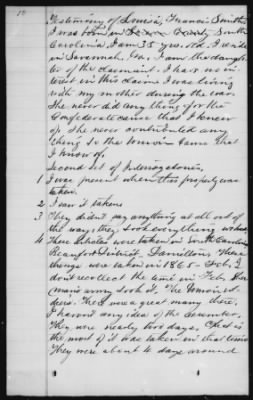 10
Testimony of Louisa, Francis Smith
I was born in South
Carolina. I am 35 yrs. old. I reside
in Savannah, Ga. I am the daugh-
ter of the claimant. I have no in-
terest in this claim. I was living
with my mother during the war.
She never did any thing for the
Confederate cause that I knew
of. She never contributed any
thing to the union cause that
I know of.
Second set of Interrogatories.
1 I was present when this property was
taken.
2 I saw it taken
3 They didn't pay anything at all out of
the way; they took everything
4 These articles were taken in South Carolina
Beaufort District, These
things were taken in 1865 - Feb. I
don't recollect the time in Feb. Sher
man's army took it, The Union sol-
diers. There was a great many there.
I havent any idea of the number.
They were nearly two days,
the most of it was taken in that time
They were about 4 days around